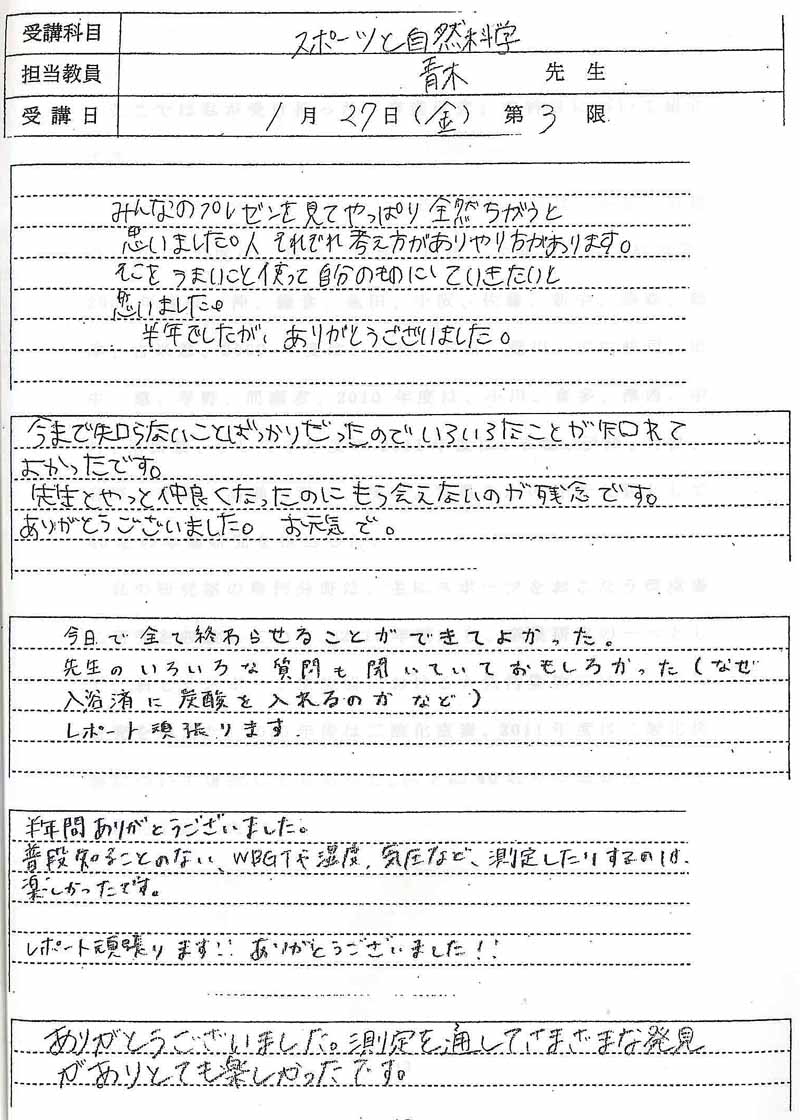 受講科目 スポーツと自然科学
担当教員 青木 先生
受講日 1月27日(金) 第3限
みんなのプレゼンを見てやっぱり全然ちがうと
思いました。人それぞれ考え方がありやり方があります。
そこをうまいこと使って自分のものにしていきたいと
思いました。
半年でしたが、ありがとうございました。
今まで知らないことばっかりだったのでいろいろなことが知れて
よかったです。
先生とやっと仲良くなったのにもう会えないのが残念です。
ありがとうございました。 お元気で。
今日で全て終わらせることができてよかった。
先生のいろいろな質問も聞いていておもしろかった(なぜ
入浴済に炭酸を入れるのかなど)
レポート頑張ります
半年間ありがとうございました。
普段知ることのない、WBGTや湿度、気圧など、測定したりするのは、
楽しかったです。
レポート頑張ります!! ありがとうございました!!
ありがとうございました。測定を通してさまざまな発見
がありとても楽しかったです。